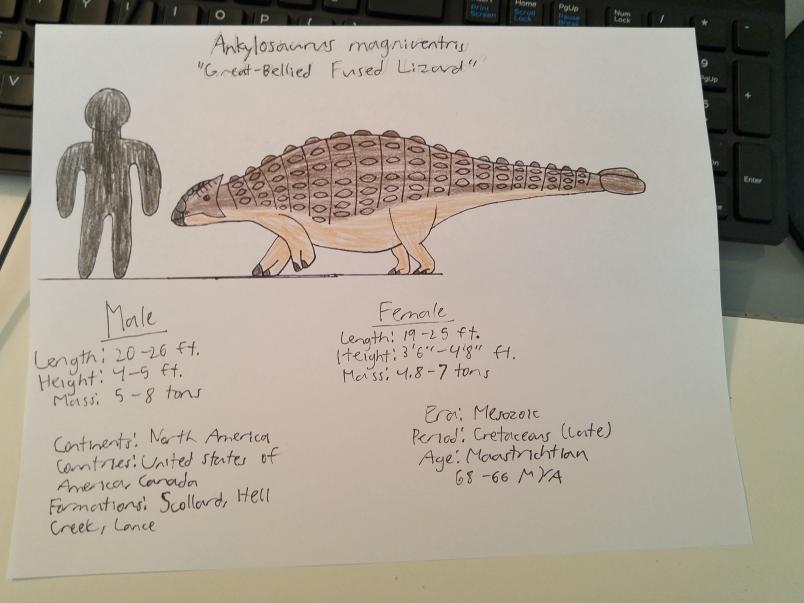 Ankylosaurus magniventris
"Great-Bellied Fused Lizard"
Male
Length: 20-26 ft.
Height: 4-5 ft.
Mass: 5-8 tons
Female
Length: 19-25 ft.
Height: 3'6"-4'8" ft.
Mass: 4.8-7 tons
Continents: North America
Countries: United States of
America, Canada
Formations: Scollard, Hell
Creek, Lance
Era: Mesozoic
Period: Cretaceous (Late)
Age: Maastrichtian
68-66 MYA
Print
Screen
Scroll
Lock
PgUp
Pause
Break
Num
Lock
/
*
-
9
PgUp
+
Enter
Y
U
I
O
P
V